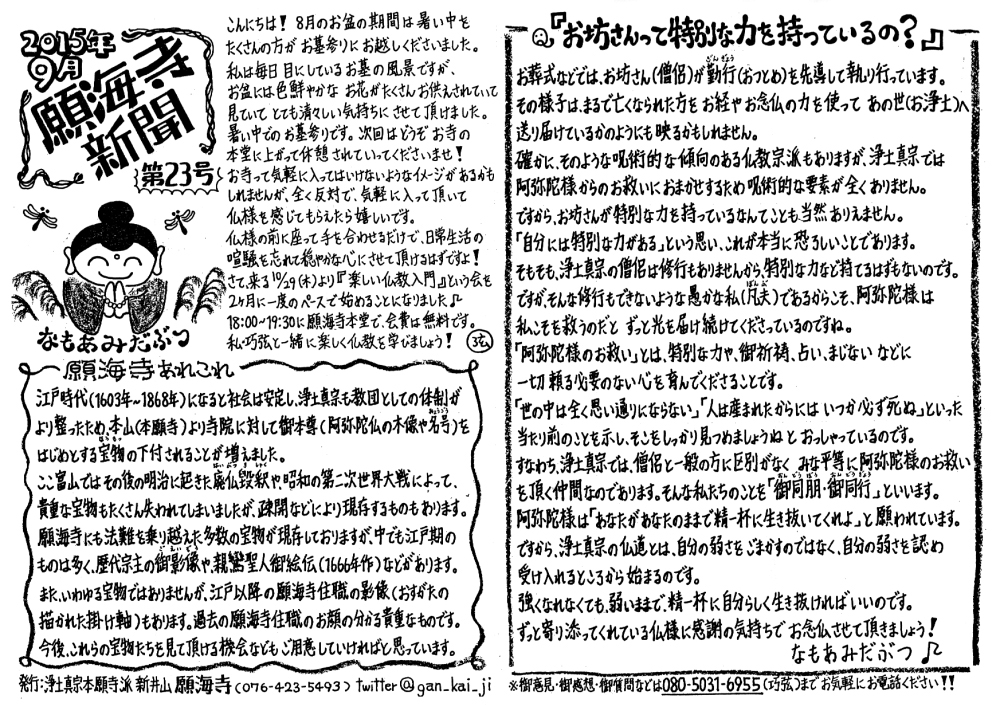 2015年
9月
願海寺
新聞
第23号
なもあみだぶつ
こんにちは！ 8月のお盆の期間は暑い中を
たくさんの方がお墓参りにお越しくださいました。
私は毎日目にしているお墓の風景ですが、
お盆には色鮮やかなお花がたくさんお供えされていて
見ていてとても清々しい気持ちにさせて頂けました。
暑い中でのお墓参りです。次回はどうぞお寺の
本堂に上がって休憩されていってくださいませ！
お寺って気軽に入ってはいけないようなイメージがあるかも
しれませんが、全く反対で、気軽に入って頂いて
仏様を感じてもらえたら嬉しいです。
仏様の前に座って手を合わせるだけで、日常生活の
喧騒を忘れて穏やかな心にさせて頂けるはずですよ！
さて、来る10/29(木)より『楽しい仏教入門』という会を
2ヶ月に一度のペースで始めることになりました♫
18:00~19:30に願海寺本堂で、会費は無料です。
私・巧弦と一緒に楽しく仏教を学びましょう！ 弦
願海寺あれこれ
江戸時代(1603年~1868年)になると社会は安定し、浄土真宗も教団としての体制が
より整ったため、本山(本願寺)より寺院に対して御本尊(阿弥陀仏の木像や名号)を
みょうごう
はじめとする宝物の下付されることが増えました。
ほうもつ
ここ富山ではその後の明治に起きた廃仏毀釈や昭和の第二次世界大戦によって、
はいぶつきしゃく
貴重な宝物もたくさん失われてしまいましたが、疎開などにより現存するものもあります。
願海寺にも法難を乗り越えた多数の宝物が現存しておりますが、中でも江戸期の
ものは多く、歴代宗主の御影像や、親鸞聖人御絵伝(1666年作)などがあります。
ごえいぞう
また、いわゆる宝物ではありませんが、江戸以降の願海寺住職の影像(おすがたの
描かれた掛け軸)もあります。過去の願海寺住職のお顔の分かる貴重なものです。
今後、これらの宝物たちを見て頂ける機会などもご用意していければと思っています。
発行:浄土真宗本願寺派 新井山 願海寺(076-423-5493) twitter@gan_kai_ji
Q.『お坊さんって特別な力を持っているの？』
お葬式などでは、お坊さん(僧侶)が勤行(おつとめ)を先導して執り行っています。
ごんぎょう
その様子は、まるで亡くなられた方をお経やお念仏の力を使ってあの世(お浄土)へ
送り届けているかのようにも映るかもしれません。
確かに、そのような呪術的な傾向のある仏教宗派もありますが、浄土真宗では
阿弥陀様からのお救いにおまかせするため呪術的な要素が全くありません。
ですから、お坊さんが特別な力を持っているなんてことも当然ありえません。
「自分には特別な力がある」という思い、これが本当に恐ろしいことであります。
そもそも、浄土真宗の僧侶は修行もありませんから、特別な力など持てるはずもないのです。
ですが、そんな修行もできないような愚かな私(凡夫)であるからこそ、阿弥陀様は
ぼんぶ
私こそを救うのだとずっと光を届け続けてくださっているのですね。
「阿弥陀様のお救い」とは、特別な力や、御祈祷、占い、まじないなどに
一切頼る必要のない心を育んでくださることです。
「世の中は全く思い通りにならない」「人は産まれたからにはいつか必ず死ぬ」といった
当たり前のことを示し、そこをしっかり見つめましょうねとおっしゃっているのです。
すなわち、浄土真宗では、僧侶と一般の方に区別がなくみな平等に阿弥陀様のお救い
を頂く仲間なのであります。そんな私たちのことを「御同朋・御同行」といいます。
おんどうぼう おんどうぎょう
阿弥陀様は「あなたがあなたのままで精一杯に生き抜いてくれよ」と願われています。
ですから、浄土真宗の仏道とは、自分の弱さをごまかすのではなく、自分の弱さを認め
受け入れるところから始まるのです。
強くなれなくても、弱いままで、精一杯に自分らしく生き抜ければいいのです。
ずっと寄り添ってくれている仏様に感謝の気持ちでお念仏させて頂きましょう！
なもあみだぶつ♫
※御意見・御感想・御質問などは080-5031-6955(巧弦)までお気軽にお電話ください!!